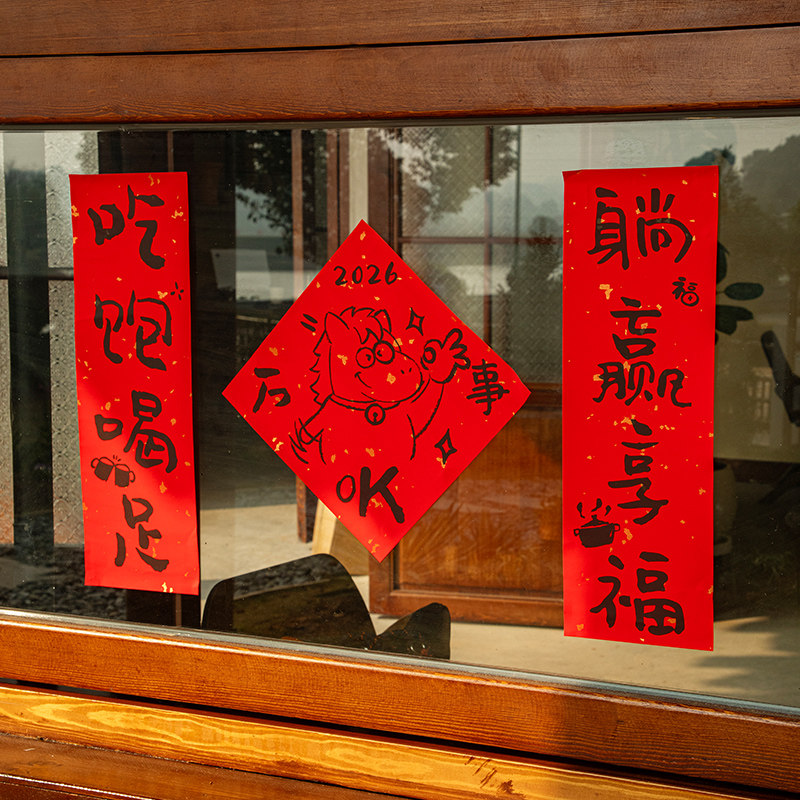 吃饱喝足
2026
万事
OK
躺赢享福
福